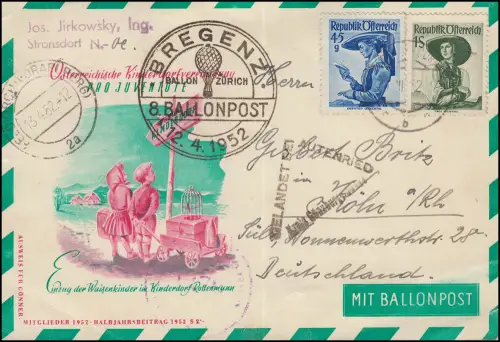 Jos. Jirkowsky, Ing.
Stronsdorf N.-Oe.
Österreichische Kinderdorfvereinigung
PRO JUVENTUTE
BREGENZ
BALLON ZÜRICH
8. BALLONPOST
12.4.1952
13.4.52-12
2a
Republik Österreich
45
g
Republik Österreich
1S
Herrn
Gerbert Britz
in
Köln a/Rh
Sülz Nonnenwerthstr 28a
Deutschland.
GELANDET BEI ALTENRIED
MIT BALLONPOST
Einzug der Waisenkinder im Kinderdorf Rottenmann
AUSWEIS FÜR GÖNNER
MITGLIEDER 1952 · HALBJAHRSBEITRAG 1952 S 2'-